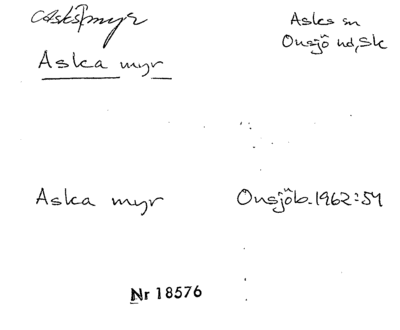 Asks myr
Asks sn
Onsjö hd, Sk
Aska myr
Aska myr Onsjöb. 1962:54
Nr 18576